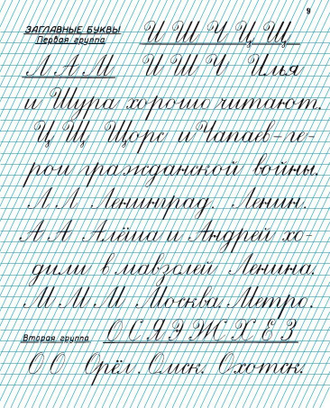 9
ЗАГЛАВНЫЕ БУКВЫ
Первая группа И Ш Ч Ц Щ
Л А М И Ш Ч Илья
и Шура хорошо читают.
Ц Щ Щорс и Чапаев-ге-
рои гражданской войны.
Л Л Ленинград. Ленин.
А А Алёша и Андрей хо-
дили в мавзолей Ленина.
М М М Москва. Метро.
Вторая группа О С Я Э Ж Х Е З
О О Орёл. Омск. Охотск.